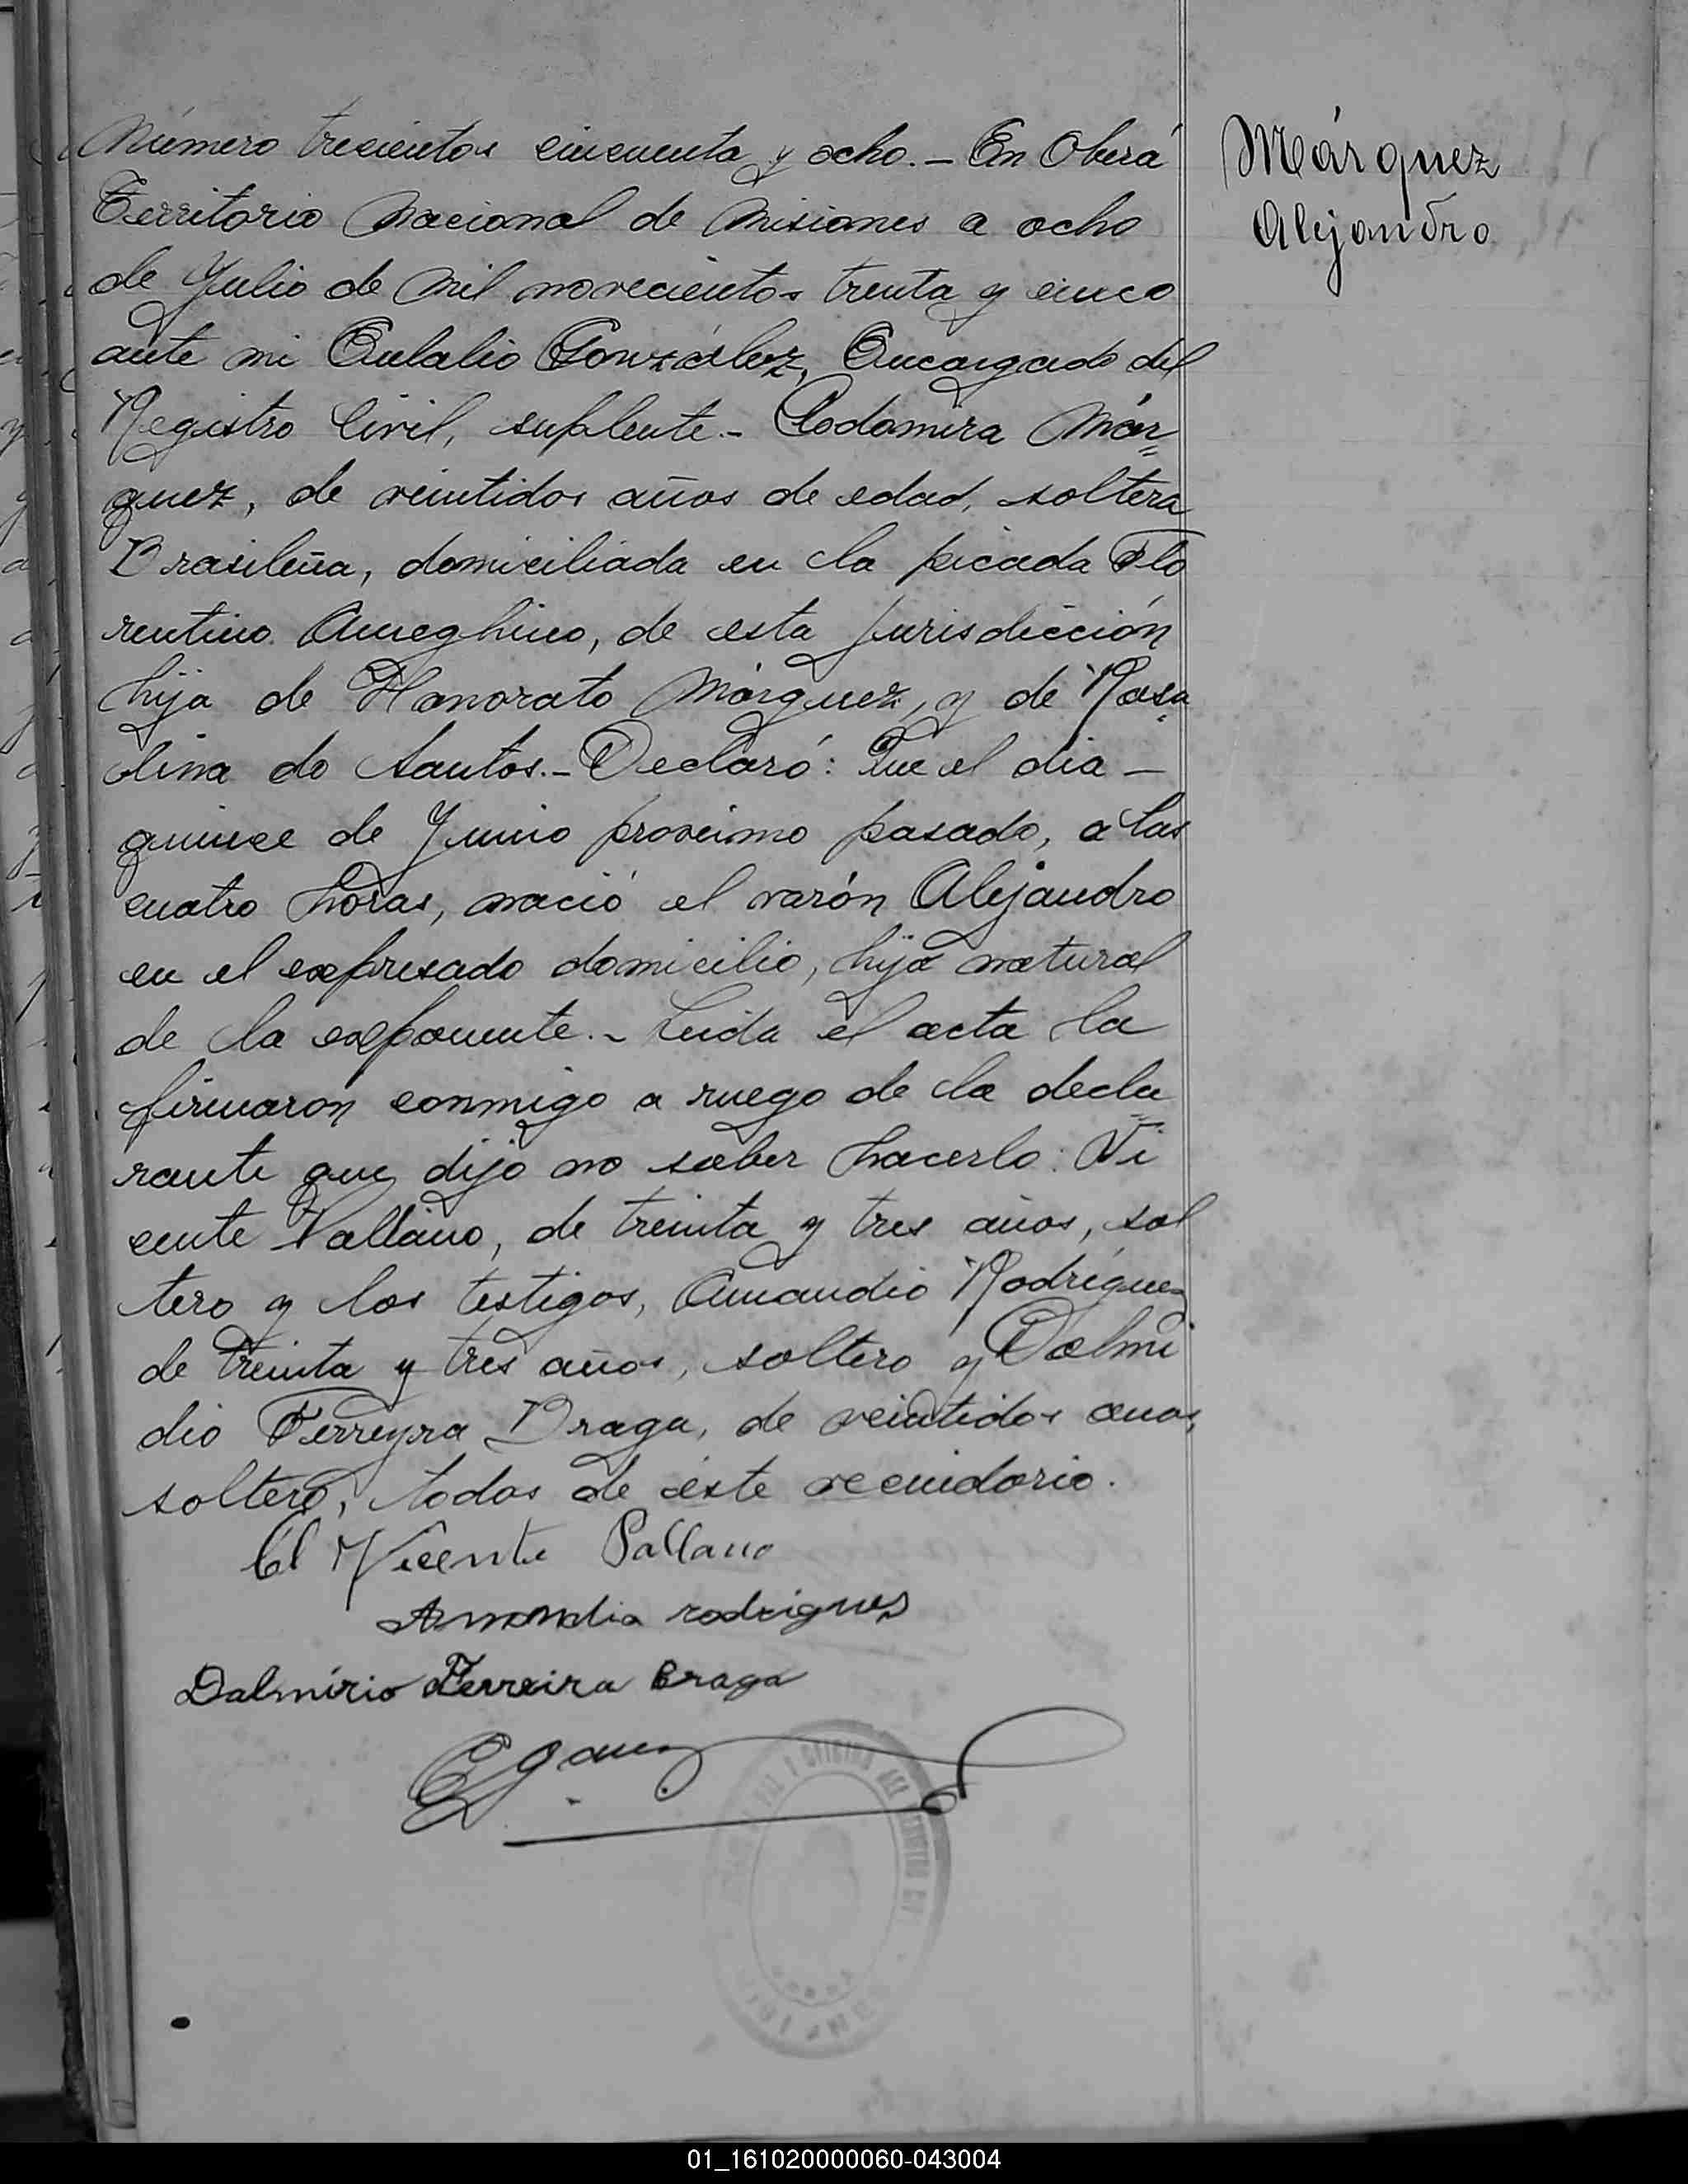 Número trecientos cincuenta y ocho.— En Oberá
Márquez
Alejandro
Territorio Nacional de Misiones a ocho
de Julio de mil novecientos trenta y cinco
ante mi Eulalio González, Encargado del
Registro Civil, suplente.- Clodomira Már=
quez, de veintidos años de edad, soltera
Brasileña, domiciliada en la picada Flo
rentino Ameghino, de esta jurisdicción
hija de Honorato Márquez, y de Rosa
lina do Santos.- Declaró: Que el dia —
quince de Junio proximo pasado, a las
cuatro horas, nació el varón Alejandro
en el expresado domicilio, hijo natural
de la exponente.- Leida el acta la
firmaron conmigo a ruego de la decla
rante que dijo no saber hacerlo: Vi
cente Pallano, de treinta y tres años, sol
tero y los testigos, Amandio Rodríguez
de treinta y tres años, soltero y Dalmi
dio Ferreyra Braga, de veintidos anos,
soltero, todos de éste vecindario.
Vicente Pallano
Amandio rodrigues
Dalmirio Ferreira Braga
01_161020000060-043004